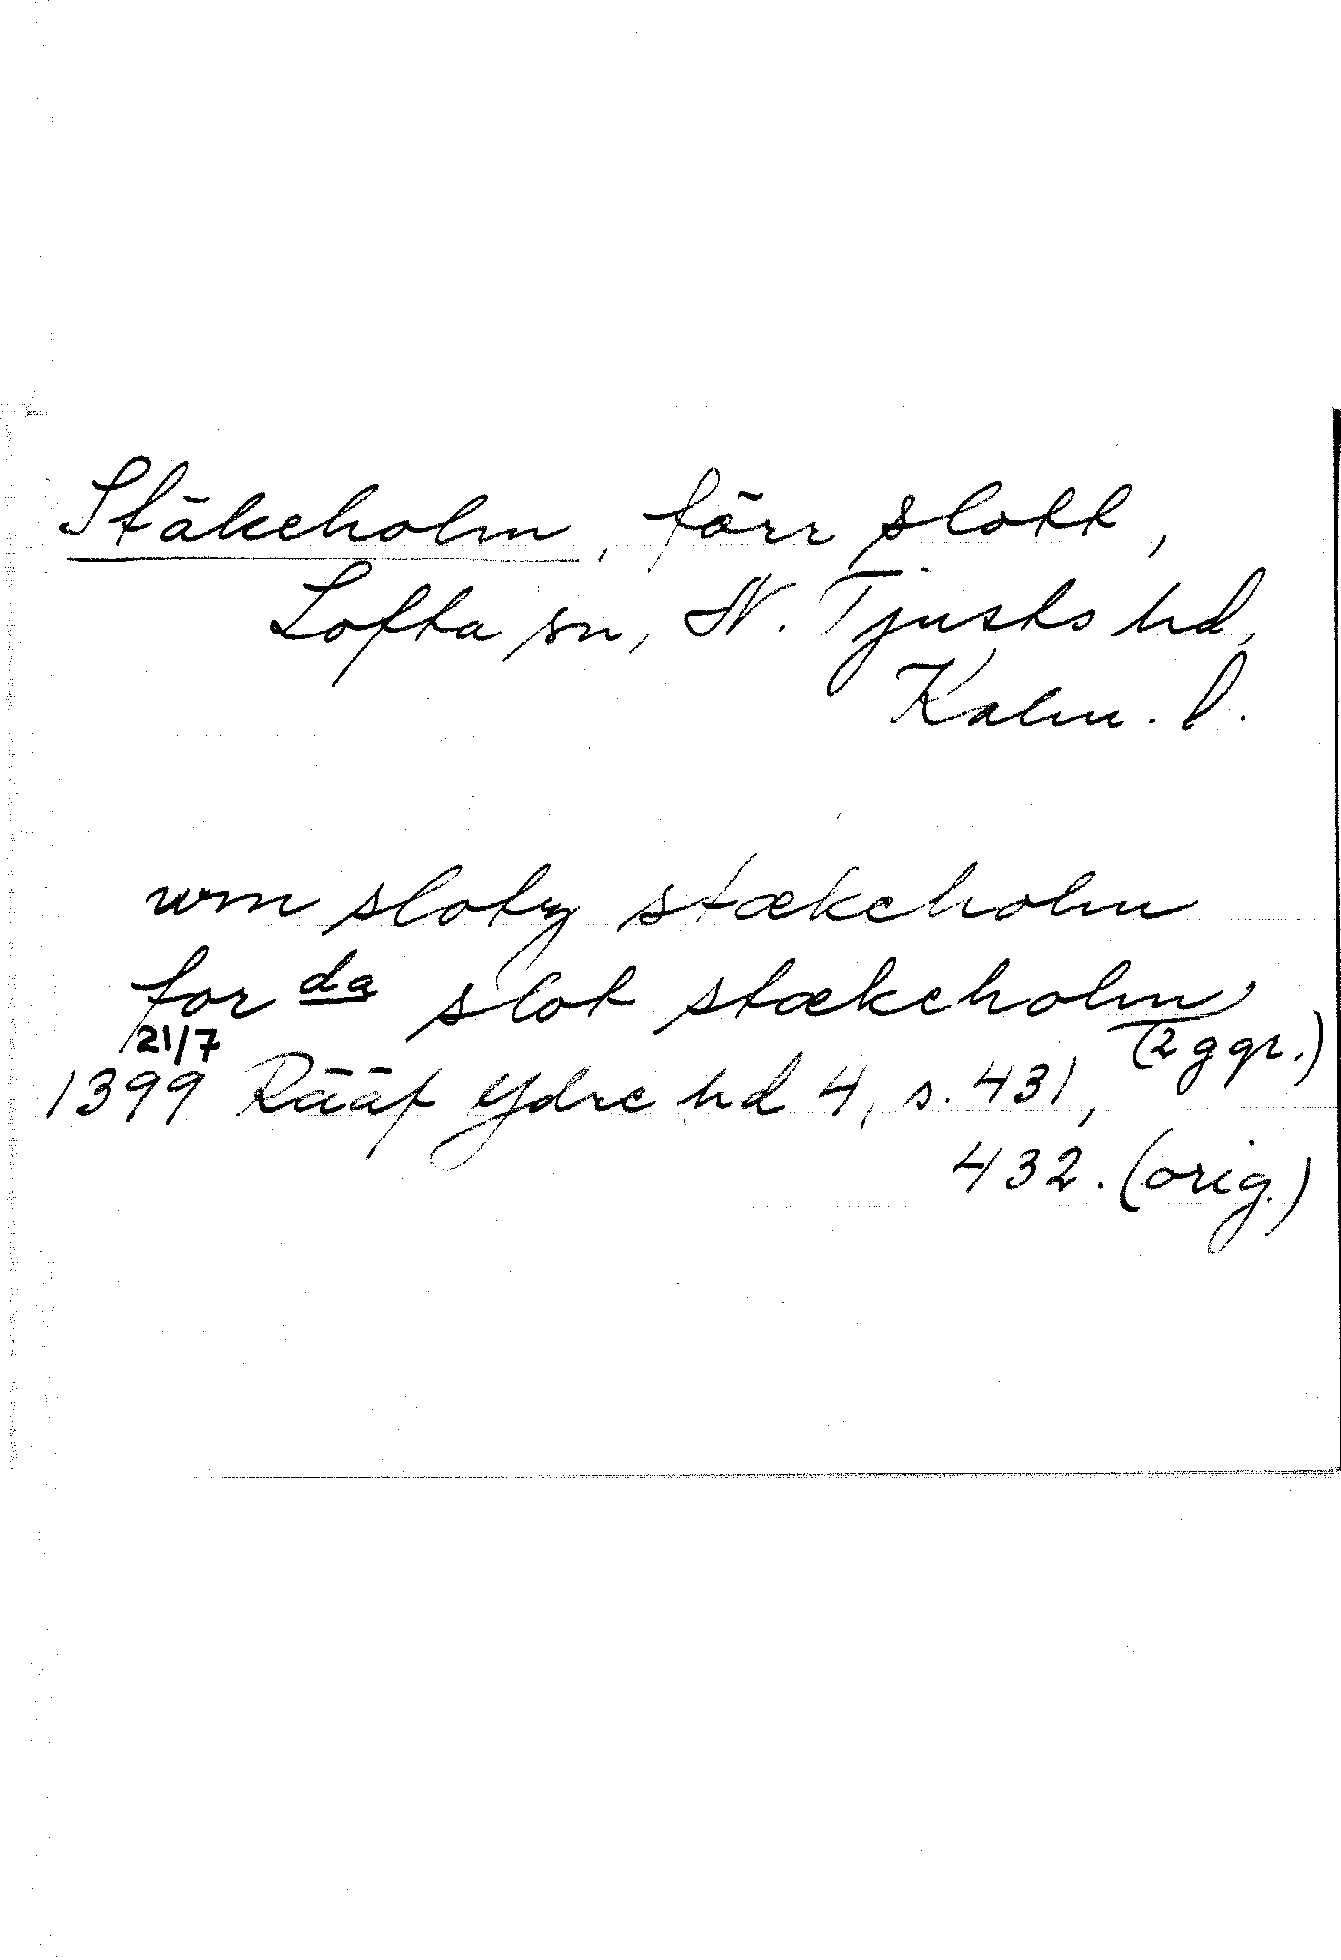 Stäkeholm, förr slott,
Lofta sn, N. Tjusts hd,
Kalm. l.
wm slotz stækeholm
for da slot stækeholm
(2 ggr.)
21/7
1399 Rääf Ydre hd 4, s. 431,
432. (orig.)